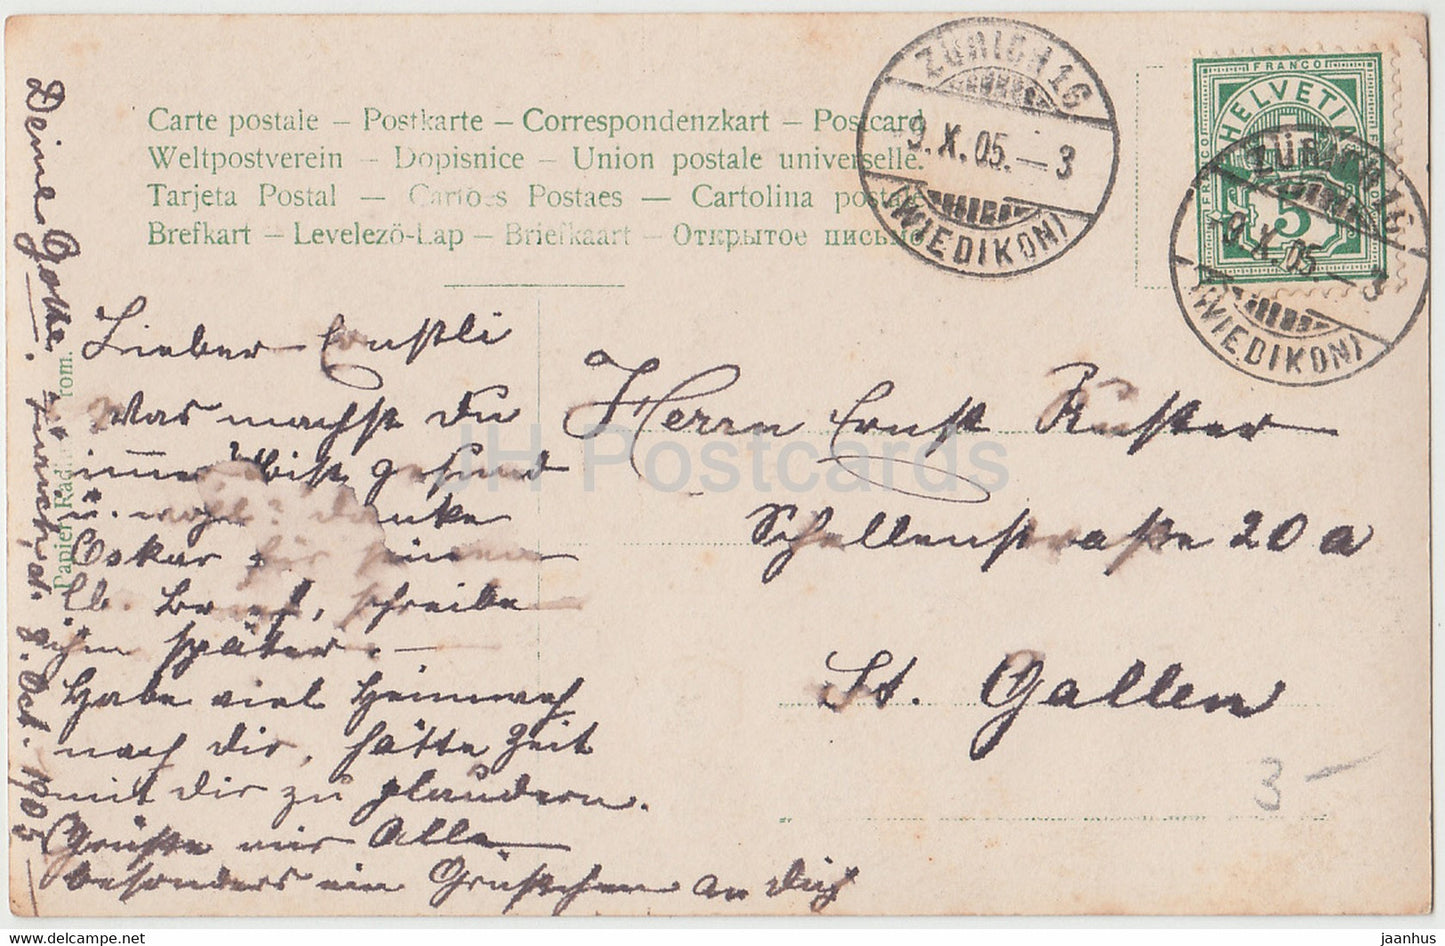 Carte postale – Postkarte – Correspondenzkart – Postcard
Weltpostverein – Dopisnice – Union postale universelle.
Tarjeta Postal – Cartões Postaes – Cartolina postale
Brefkart – Levelezö-Lap – Briefkaart – Открытое письмо
ZÜRICH 16
9.X.05.–3
(WIEDIKON)
FRANCO
HELVETIA
FRANCO
5
ZÜRICH 16
9.X.05.–3
(WIEDIKON)
Lieber Ernstli
Was machst du
immer? Bist gesund
u. wohl? danke
Oskar für seinen
lb. Brief, schreibe
ihm später. –
Habe viel Heimweh
nach dir, hätte Zeit
mit dir zu plaudern.
Grüsse mir Alle
besonders ein Grüsschen an dich
Deine Gotte. Zürich, d. 8. Oct. 1905
Papier Rad rom.
Herrn Ernst Kuster
Schellenstrasse 20 a
St. Gallen
3 –
JH Postcards
jaanhus
jaanhus.com